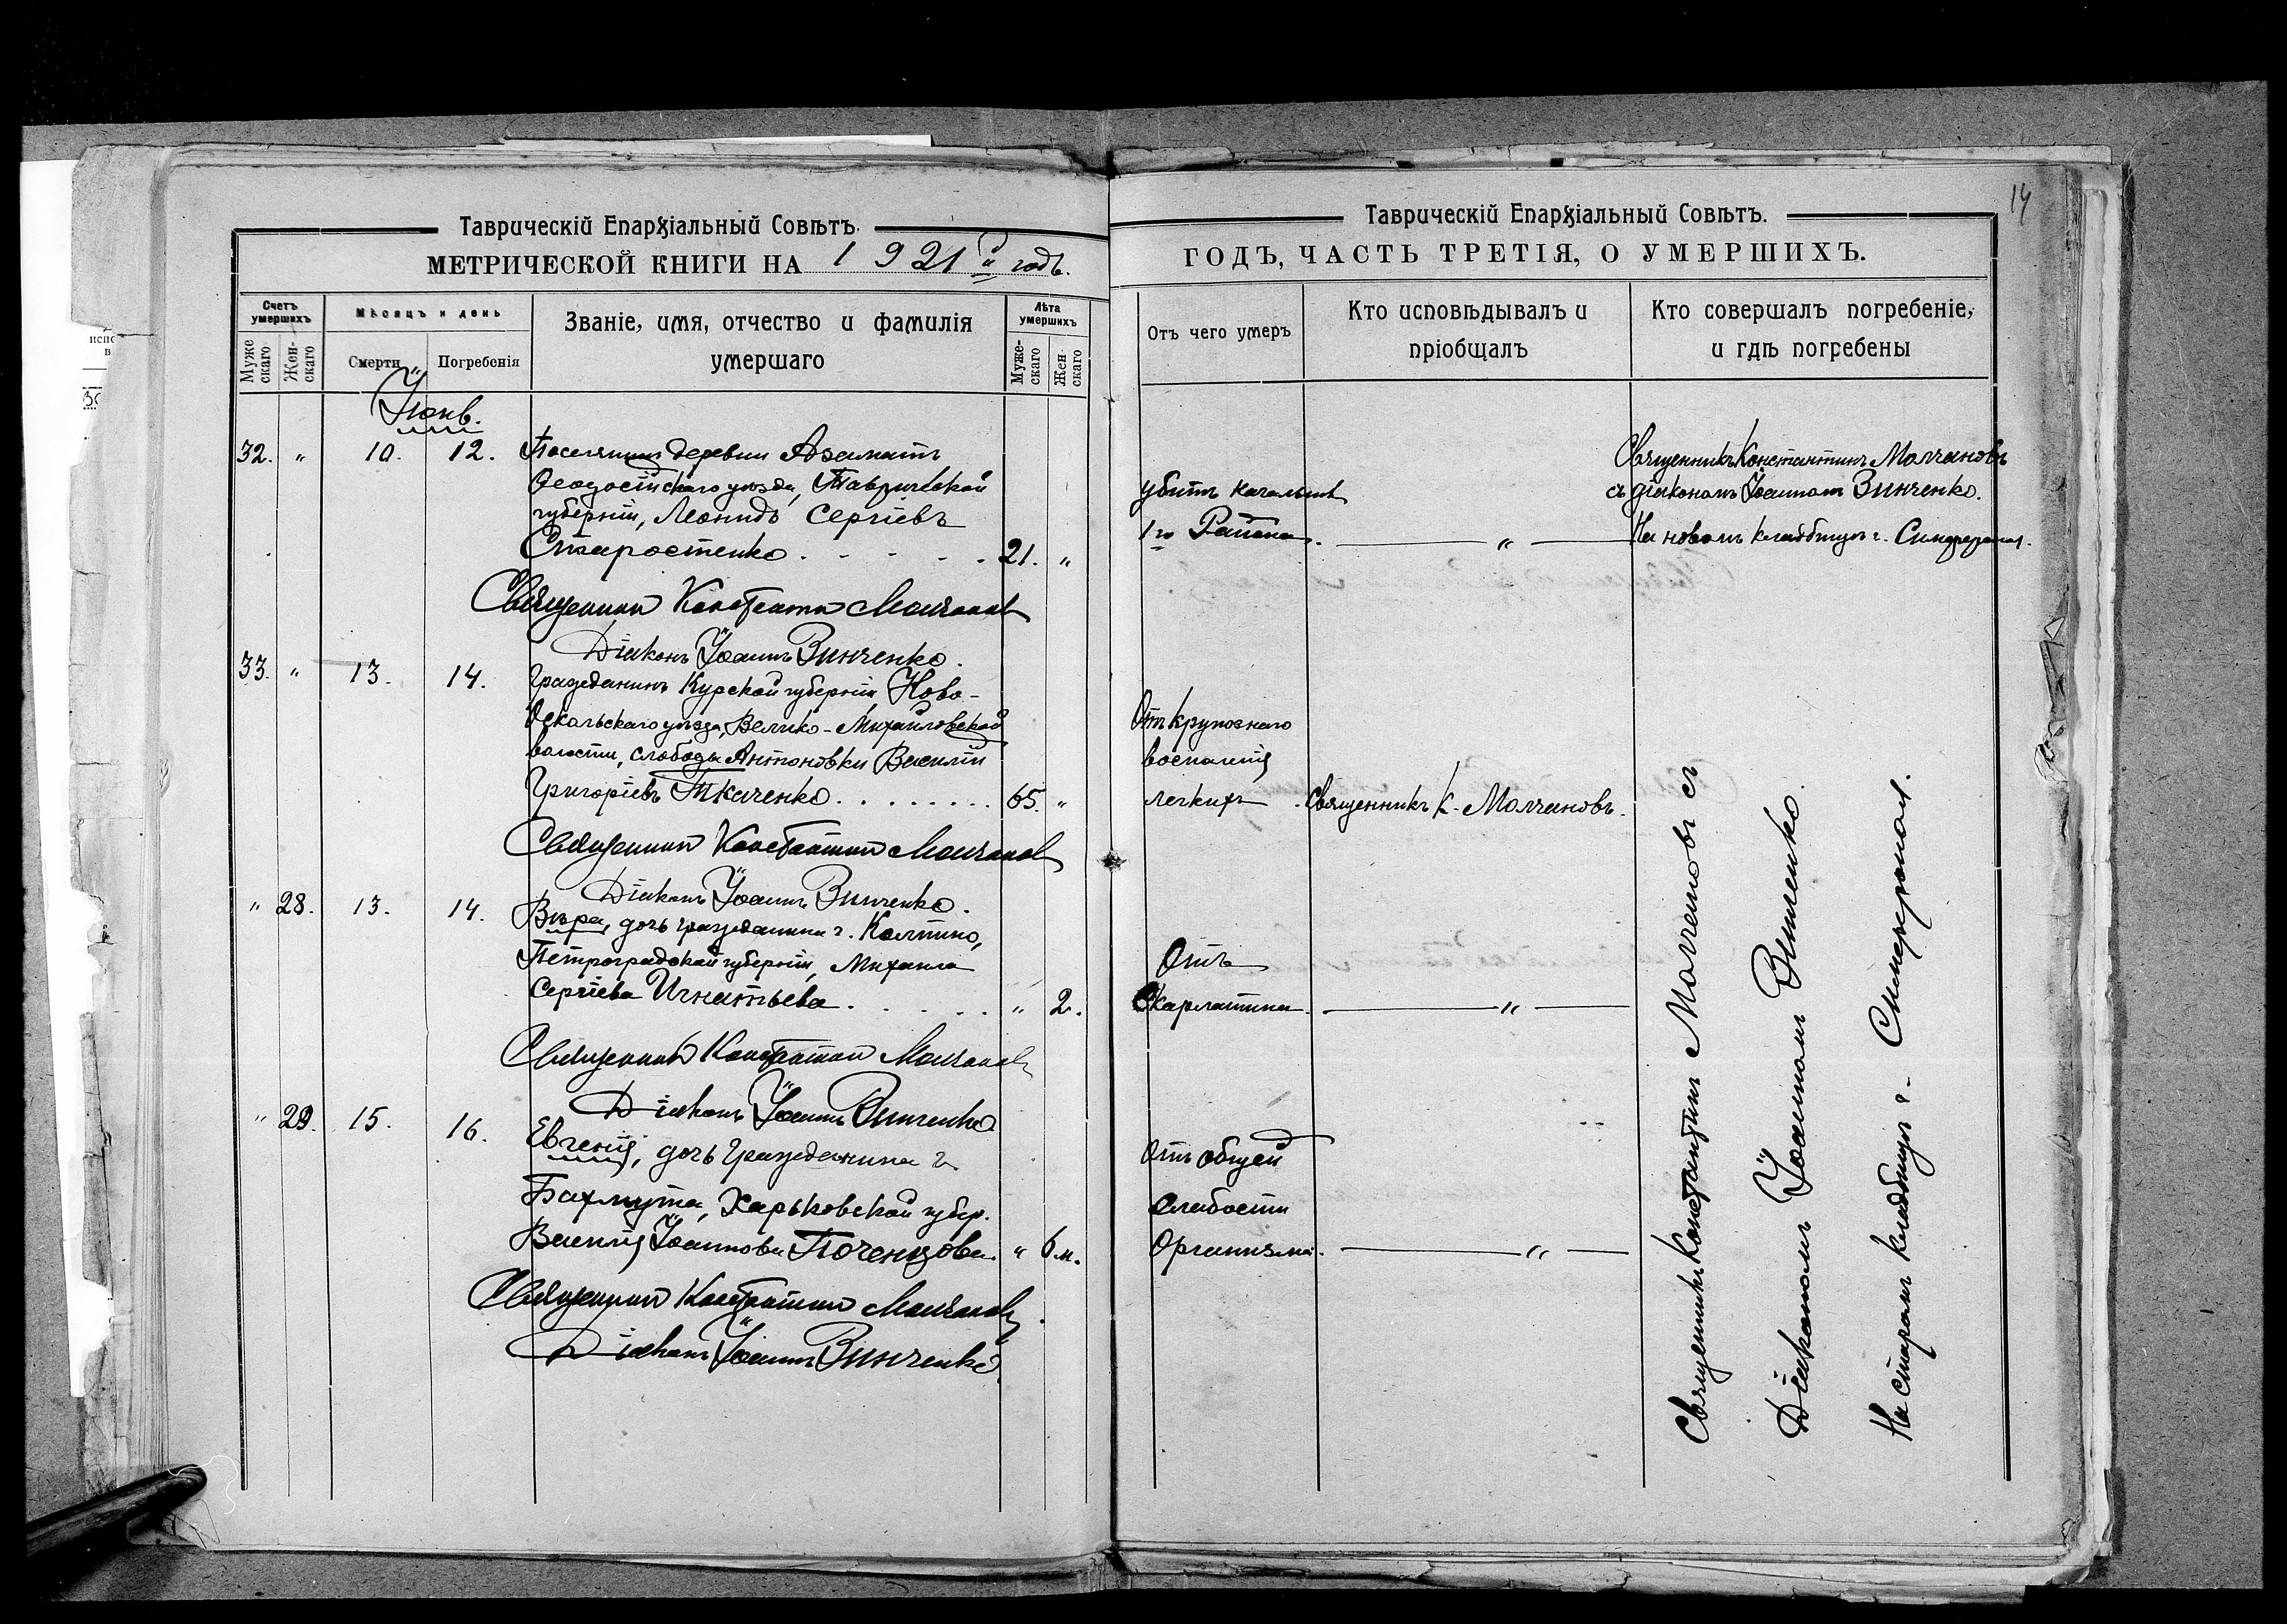 Таврическій Епархіальный Совѣтъ.
МЕТРИЧЕСКОЙ КНИГИ НА 1921й годъ.
Счетъ умершихъ
Мѣсяцъ и день
Званіе, имя, отчество и фамилія умершаго
Лѣта умершихъ
Мужескаго
Женскаго
Смерти
Погребенія
Мужескаго
Женскаго
32. " 10. 12. Поселянинъ деревни Азаматъ
Ѳеодосійскаго уѣзда, Таврической
губерніи, Леонидъ Сергіевъ
Старостенко . . . . . 21. "
Священникъ Константинъ Молчановъ
Діаконъ Іоаннъ Винченко.
33. " 13. 14. Гражданинъ Курской губерніи, Ново-
Оскольскаго уѣзда, Велико-Михайловской
волости, слободы Антоновки Василій
Григоріевъ Ткаченко . . . . . . . . 65. "
Священникъ Константинъ Молчановъ
Діаконъ Іоаннъ Винченко.
" 28. 13. 14. Вѣра, дочь гражданина г. Колпино,
Петроградской губерніи, Михаила
Сергіева Игнатьева . . . . . " 2.
Священникъ Константинъ Молчановъ
Діаконъ Іоаннъ Винченко
" 29. 15. 16. Евгенія, дочь гражданина г.
Бахмута, Харьковской губер.
Василія Іоаннова Поченцова. " 6 м.
Священникъ Константинъ Молчановъ.
Діаконъ Іоаннъ Винченко.
14
Таврическій Епархіальный Совѣтъ.
ГОДЪ, ЧАСТЬ ТРЕТІЯ, О УМЕРШИХЪ.
Отъ чего умеръ
Кто исповѣдывалъ и пріобщалъ
Кто совершалъ погребеніе, и гдѣ погребены
Священникъ Константинъ Молчановъ
съ діакономъ Іоанномъ Винченко.
На новомъ кладбищѣ г. Симферополя.
убитъ
1го Района. "
Отъ крупознаго
воспаленія
легкихъ. Священникъ К. Молчановъ.
Отъ
Скарлатины. "
Отъ общей
слабости
Организма. "
Священникъ Константинъ Молчановъ съ
Діакономъ Іоанномъ Винченко.
На старомъ кладбищѣ г. Симферополя.